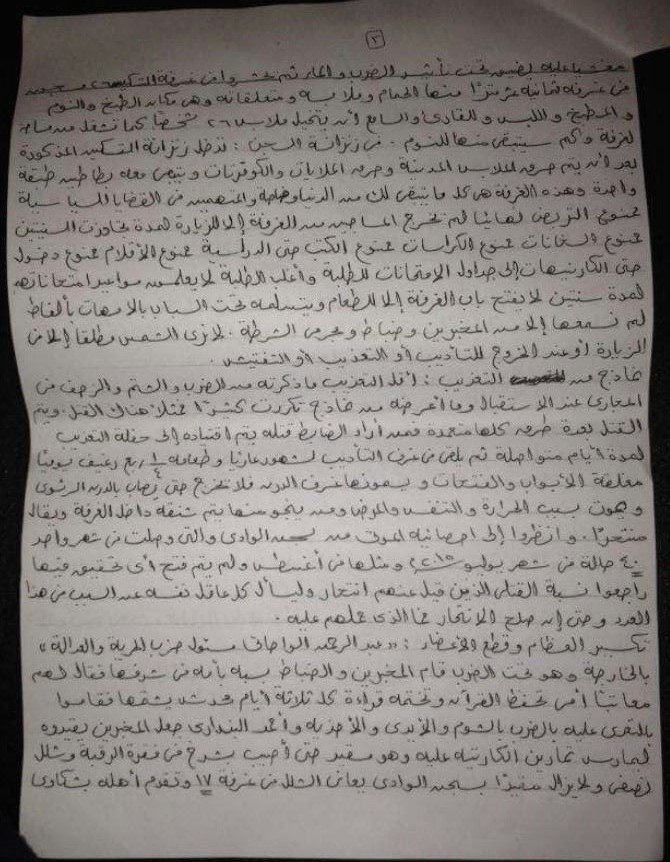 ٣
مغشيا عليه لضيوف تحت تأثير الضرب والماء ثم يحشروا في غرفة التسكين ٢٦ مسجون
في غرفة ثمانية عشر مترًا منها الحمام وملابسه ومتعلقاته وهي مكان الطبخ والنوم
والمطبخ واللبس وللقارئ والسامع أن يتخيل ملابس ٢٦ شخصًا كما تشغل من مساحة
الغرفة وكم سيتبقى منها للنوم. في زنزانة السجن: ندخل زنزانة التسكين المذكورة
بعد أن يتم صرف الملابس المدنية وصرف الملايات والكوفرتات ويتبقى معه بطاطين خفيفة
واحدة وهذه الغرفة هي كل ما يتبقى لك من الدنيا وخاصة والمتهمين في القضايا السياسية
ممنوع التريض نهائيًا لم نخرج المساجين من الغرفة إلا للزيارة لمدة تجاوزت السنتين
ممنوع السخانات ممنوع الكراسات ممنوع الكتب حتى الدراسية ممنوع الأقلام ممنوع دخول
حتى الكارنيهات إلى جداول الامتحانات للطلبة وأغلب الطلبة لا يعلمون مواعيد امتحاناتهم
لمدة سنتين لا يفتح باب الغرفة إلا للطعام ويتسلمه تحت السباب بالأمهات بألفاظ
لم نسمعها إلا من المخبرين وضباط ومجرمي الشرطة. لا نرى الشمس مطلقًا إلا في
الزيارة أو عند الخروج للتأديب أو التعذيب أو التفتيش.
نماذج من التعذيب: أقل التعذيب ما ذكرته من الضرب والشتم والزحف في
المجاري عند الاستقبال وما أعرضه من نماذج تكررت كثيرًا فمثلا هناك القتل. ويتم
القتل بعدة طرق كلها متعمدة فمن أراد الضابط قتله يتم اقتياده إلى حفلة التعذيب
لمدة أيام متواصلة ثم يلقى في غرف التأديب لشهور عاريًا وطعامه ١/٤ ربع رغيف يوميًا
مغلقة الأبواب والفتحات ويسمونها غرف الدرن فلا تخرج حتى تصاب بالدرن الرئوي
ويموت بسبب الحرارة والتنفس والمرض ومن ينجو منها يتم شنقه داخل الغرفة ويقال
منتحرًا. وانظروا إلى احصائية الموتى من سجن الوادي والتي وصلت في شهر واحد
٤٠ حالة في شهر يوليو ٢٠١٥ ومثلها في أغسطس ولم يتم فتح أي تحقيق فيها
راجعوا نسبة القتلى الذين قيل عنهم انتحار وليسأل كل عاقل نفسه عن السبب في هذا
العدد وحتى إن صح الانتحار فما الذي حملهم عليه.
تكسير العظام وقطع الأعضاء: «عبد الرحمن الواحاتي مسئول حزب الحرية والعدالة»
بالخارجة وهو تحت الضرب قام المخبرين والضباط بسبه بأمه في شرفها فقال لهم
معاتبًا أمي تحفظ القرآن وتختمه قراءة كل ثلاثة أيام فحدث بشتمها فقاموا
بالتعدي عليه بالضرب بالشوم والأيدي والأحذية وأحمد البنداري جعل المخبرين يقيدوه
ليمارس تمارين الكاراتيه عليه وهو مقيد حتى أصيب بشرخ في فقرة الرقبة وشلل
نصفي ولا يزال مقيدًا بسجن الوادي يعاني الشلل في غرفة ١٧ وتقدم أهله بشكاوى